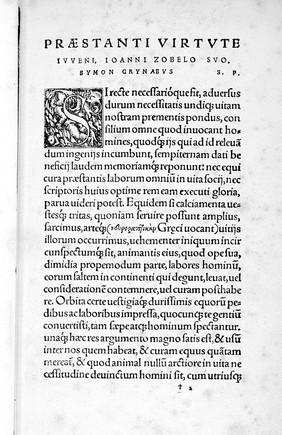 PRÆSTANTI VIRTVTE
IVVENI, IOANNI ZOBELO SVO,
SYMON GRYNAEVS S. P.
SI recte necessarióque fit, aduersus
durum necessitatis undiq; uitam
nostram prementis pondus, con
silium omne quod inuocant ho-
mines, quodq; ijs qui ad id releuā
dum ingenijs incumbunt, sempiternam dati be
neficij laudem memoriamq; reponunt: nec equi
cura præstantis laborum omniū in uita socij, nec
scriptoris huius optime rem eam executi gloria,
parua uideri potest. Etquidem si calciamenta ue-
stesq; tritas, quoniam seruire possunt amplius,
sarcimus, artēq; Greci uocant) uitijs
illorum occurrimus, uehementer iniquum incir
cunspectumq; sit, animantis eius, quod ope sua,
dimidia propemodum parte, labores hominū,
eorum saltem in continenti qui degunt, leuat, uel
considerationē contemnere, uel curam posthabe
re. Orbita certe uestigiaq; durissimis equorū pe-
dibus ac laboribus impressa, quocunq; te gentiū
conuertisti, tam sæpe atq; hominum spectantur.
una q; hæc res argumento magno satis est, & usū
inter nos quem habeat, & curam equus quātam
mereat, & quod animal nullū arctiore in uita ne
cessitudine deuinctum homini sit, cum utriusq;
† 2